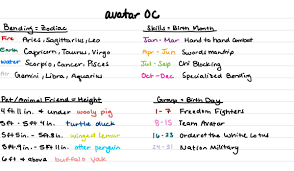 avatar OC
Bending = Zodiac
Fire Aries, Sagittarius, Leo
Earth Capricorn, Taurus, Virgo
Water Scorpio, Cancer, Pisces
Air Gemini, Libra, Aquarius
Skills = Birth Month
Jan - Mar Hand to hand Combat
Apr - Jun Swordsmanship
Jul - Sep Chi Blocking
Oct - Dec Specialized Bending
Pet/Animal Friend = Height
4ft 11in. & under wooly pig
5ft - 5ft 4in. turtle duck
5ft 5in. - 5ft 8in. winged lemur
5ft 9in. - 5ft 11in. otter penguin
6ft & above buffalo yak
= Birth Day
1 - 7 Freedom Fighters
8 - 15 Team Avatar
16 - 23 Order of the White Lotus
24 - 31 Nation Military